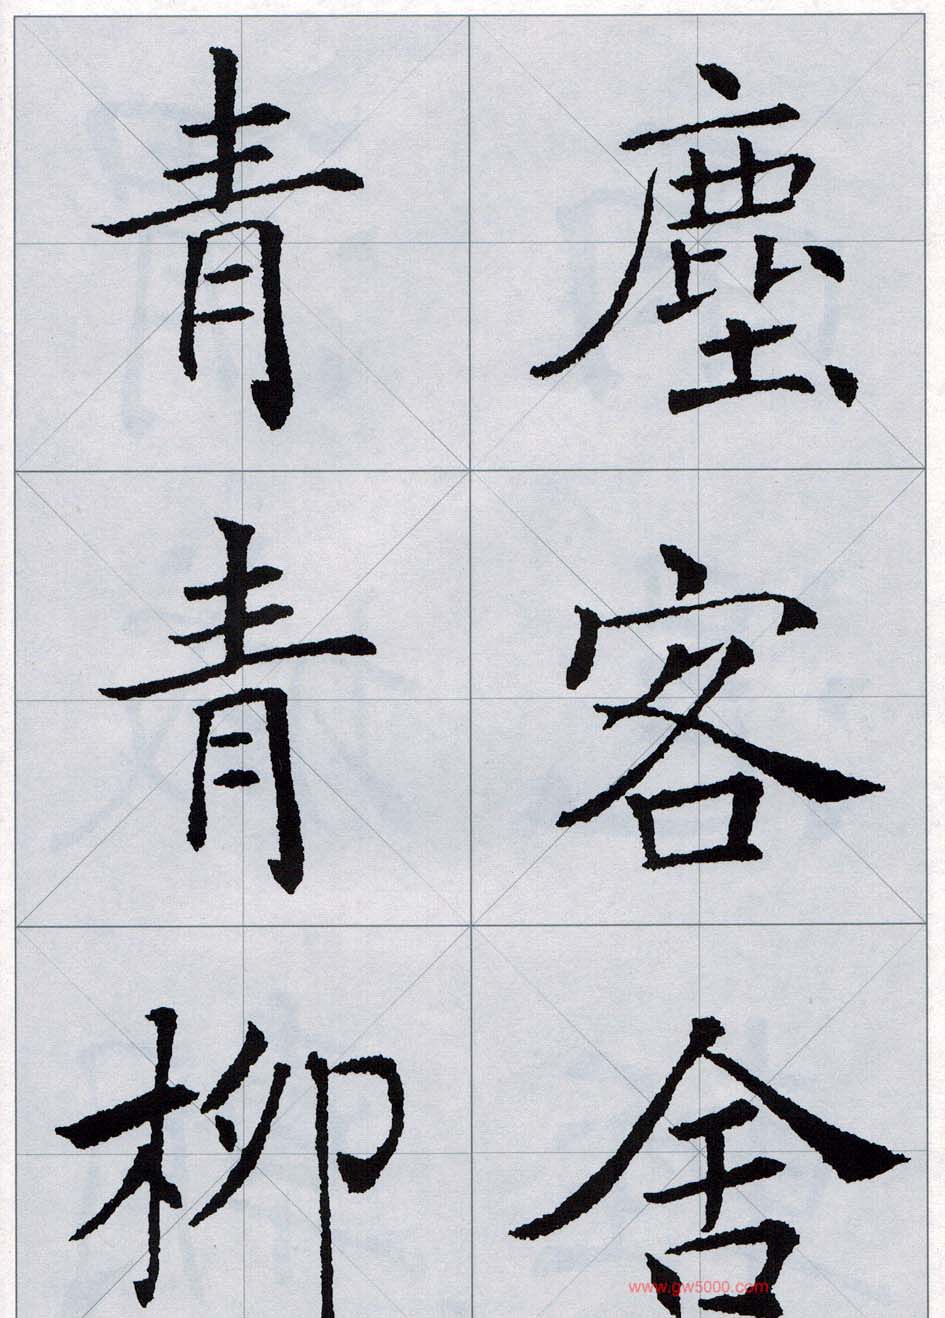 塵客舍
青青柳
www.gw5000.com